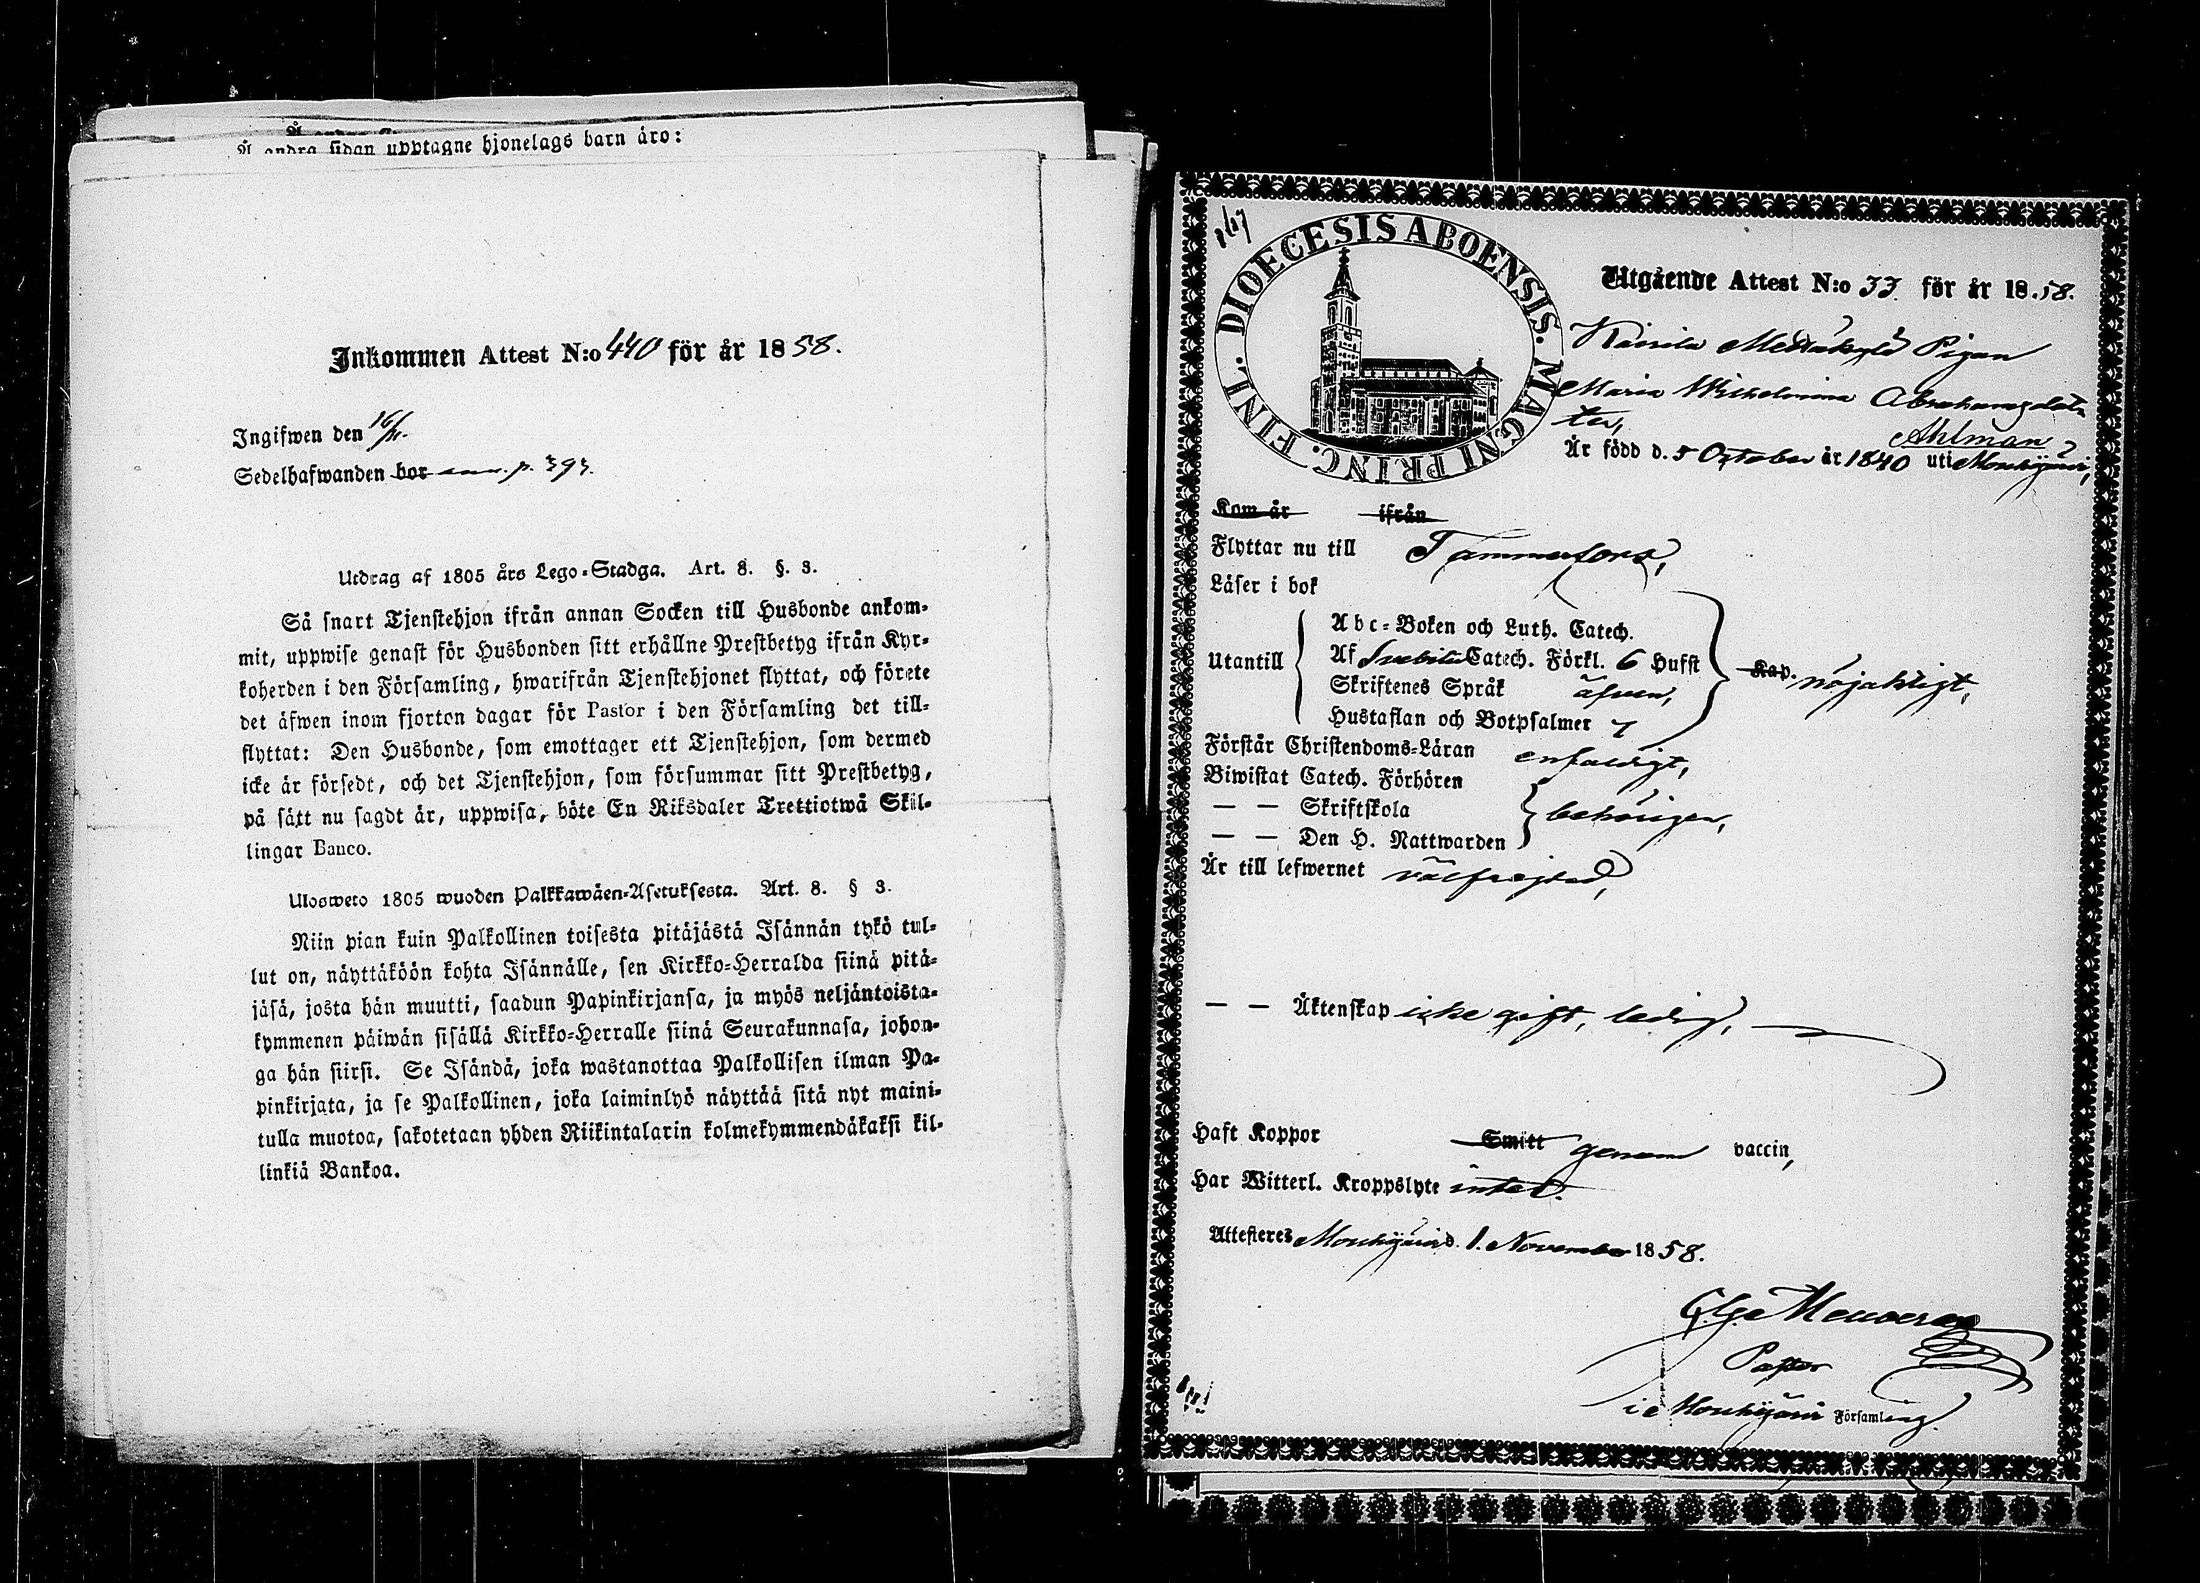 Å andra sidan upptagne hjonelags barn äro:
Inkommen Attest N:o 440 för år 1858.
Ingifwen den 16/11.
Sedelhafwanden bor ann. p. 393.
Utdrag af 1805 års Lego-Stadga. Art. 8. §. 3.
Så snart Tjenstehjon ifrån annan Socken till Husbonde ankom-
mit, uppwise genast för Husbonden sitt erhållne Prestbetyg ifrån Kyr-
koherden i den Församling, hwarifrån Tjenstehjonet flyttat, och förete
det äfwen inom fjorton dagar för Pastor i den Församling det till-
flyttat: Den Husbonde, som emottager ett Tjenstehjon, som dermed
icke är försedt, och det Tjenstehjon, som försummar sitt Prestbetyg,
på sätt nu sagdt är, uppwisa, böte En Riksdaler Trettiotwå Skil-
lingar Banco.
Ulosweto 1805 wuoden Palkkawäen-Asetuksesta. Art. 8. § 3.
Niin pian kuin Palkollinen toisesta pitäjästä Isännän tykö tul-
lut on, näyttäköön kohta Isännälle, sen Kirkko-Herralda siinä pitä-
jäsä, josta hän muutti, saadun Papinkirjansa, ja myös neljäntoista-
kymmenen päiwän sisällä Kirkko-Herralle siinä Seurakunnasa, johon-
ga hän siirsi. Se Isändä, joka wastanottaa Palkollisen ilman Pa-
pinkirjata, ja se Palkollinen, joka laiminlyö näyttää sitä nyt maini-
tulla muotoa, sakotetaan yhden Riikintalarin kolmekymmendäkaksi kil-
linkiä Bankoa.
DIOECESIS ABOENSIS. MAGNI PRINC. FINL.
Utgående Attest N:o 33. för år 1858.
Pigan
Maria Wilhelmina Abrahamsdot-
ter,
Ahlman
Är född d. 5 October år 1840 uti Mouhijärvi,
Kom år ifrån
Flyttar nu till Tammerfors,
Läser i bok
Utantill
Abc-Boken och Luth. Catech.
Af Svebilii Catech. Förkl. 6 Hufst Kap. nöjaktigt,
Skriftenes Språk äfven,
Hustaflan och Botpsalmer 7
Förstår Christendoms-Läran enfaldigt,
Biwistat Catech. Förhören
— — Skriftskola behörigen,
— — Den H. Nattwarden
Är till lefwernet välfrejdad,
— — Äktenskap icke gift, ledig,
Haft Koppor Smitt genom vaccin,
Har Witterl. Kroppslyte intet.
Attesteres Mouhijärvi d. 1. November 1858.
Pastor
i Mouhijärvi Församling.